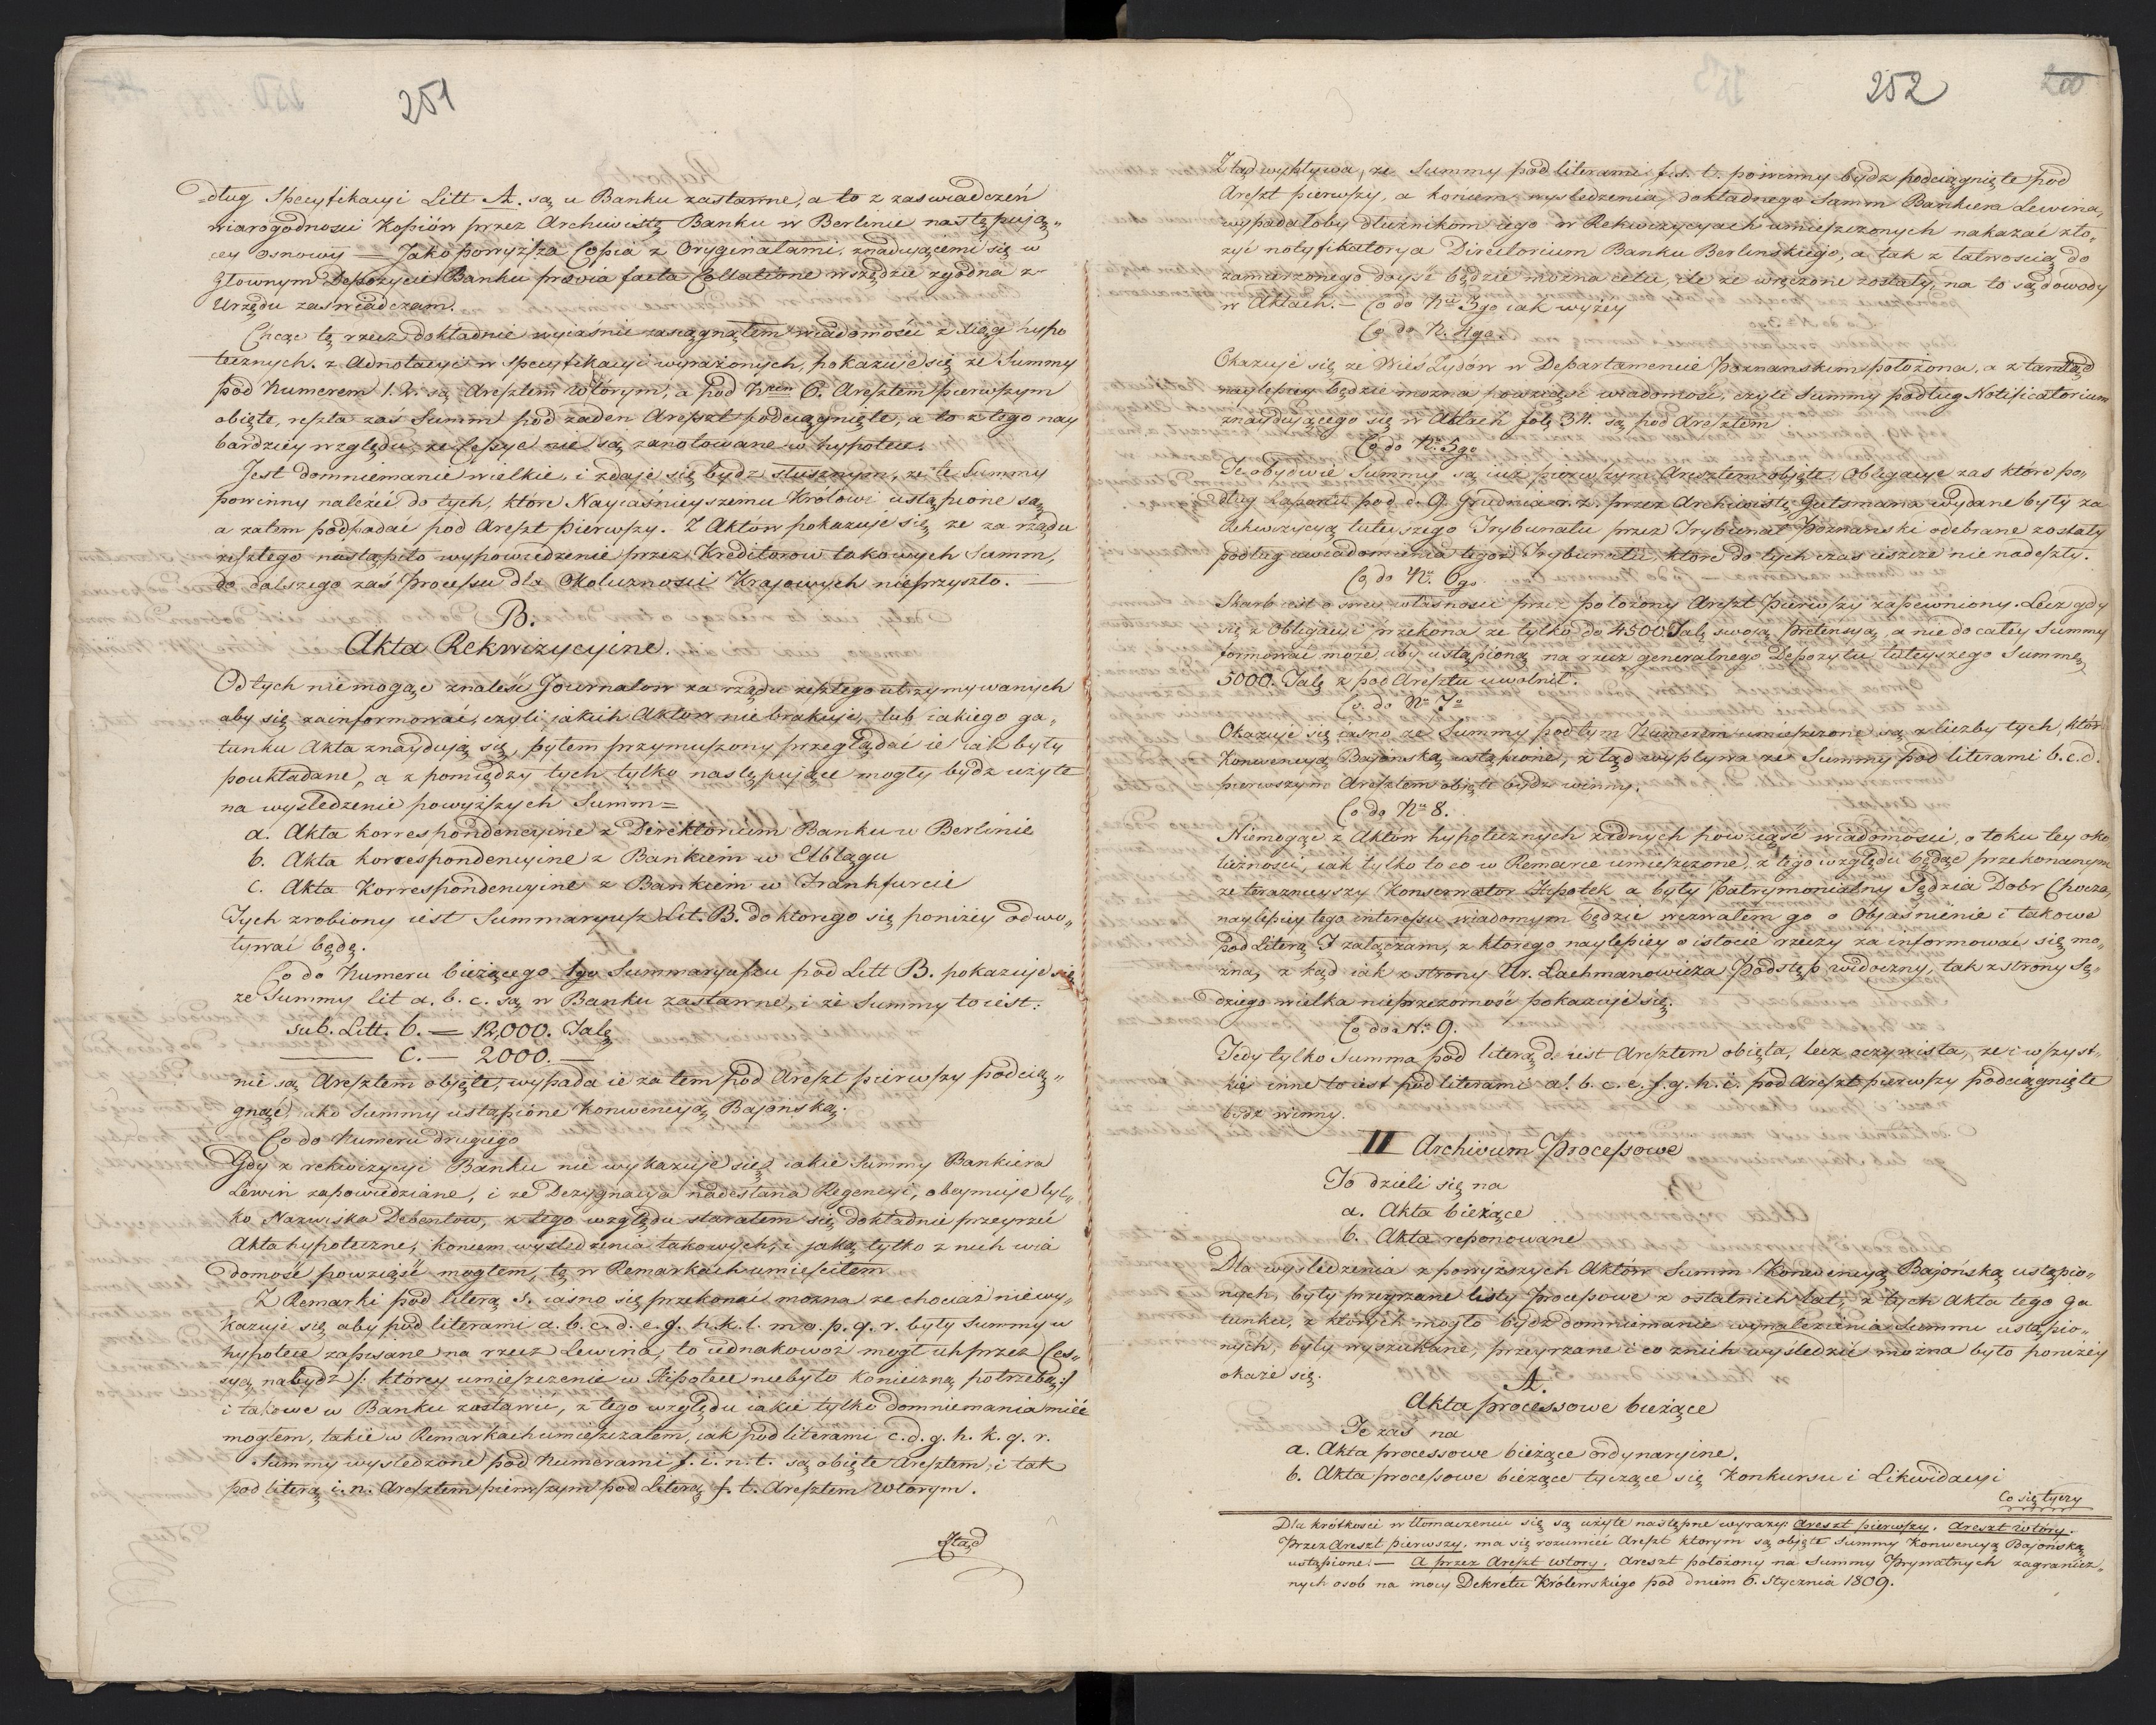 251
dług Specyfikacyi Litt A. są u Banku zastawne, a to z zaswiadczeń
wiarogodnosci Kopiów przez Archiwistę Banku w Berlinie następują„
cey osnowy = Jako powyższa Copia z Oryginałami, znaduiącemi się w
Głownym Depozycie Banku prævia facta Collatione wszędzie zgodna z
Urzędu zaswiadczam.
Chcąc tę rzecz dokładnie wyiasnić zasiągnąłem wiadomości z xiąg hypo
tecznych. z Adnotacyi w specyfikacyi wyrażonych, pokazuie się ze Summy
pod Numerem 1. 2. są Aresztem wtórym, a pod Nrem 6. Aresztem pierwszym
obięte, reszta zaś Summ pod żaden Areszt podciągnięte, a to z tego nay
bardziey względu, ze Cessye nie są zanotowane w hypotece.
Jest domniemanie wielkie, i zdaje się bydz słusznym, ze te Summy
powinny należeć do tych, które Nayiaśnieyszemu Królowi ustąpione są,
a zatem podpadać pod Areszt pierwszy. Z Aktów pokazuje się ze za rządu
zeszłego nastąpiło wypowiedzenie przez Kreditorow takowych Summ,
do dalszego zaś Processu dla Okolicznosci Krajowych nieprzyszło. —
B.
Akta Rekwizycyine.
Od tych niemogąc znaleść Journalow za rządu zeszłego utrzymywanych
aby się zainformować, czyli iakich Aktow nie brakuje, lub iakiego ga„
tunku Akta znayduią się, byłem przymuszony przeglądać ie iak były
poukładane, a z pomiędzy tych tylko następujące mogły bydz użyte
na wysledzenie powyższych Summ =
a. Akta korrespondencyine z Direktorium Banku w Berlinie
b. Akta korrespondencyine z Bankiem w Elblągu
c. Akta Korrespondencyine z Bankiem w Frankfurcie
Tych zrobiony iest Summaryusz Lit. B. do ktorego się poniżey odwo„
ływać będę.
Co do Numeru bieżącego 1go Summaryuszu pod Litt B. pokazuje się
ze Summy lit a. b. c. są w Banku zastawne, i że Summy to iest:
sub. Litt. b. = 12,000. Talę
—— c. — 2000. —
nie są Aresztem objęte, wypada ie zatem pod Areszt pierwszy podcią„
gnąć, iako Summy ustąpione Konwencyą Bajońską.
Co do Numeru drugiego
Gdy z rekwizycyi Banku nie wykazuje się iakie Summy Bankiera
Lewin zapowiedziane, i ze Dezygnacya nadesłana Regencyi, obeymuje tyl„
ko Nazwiska Debentow, z tego względu starałem się dokładnie przeyrzeć
Akta hypoteczne, koncem wysledzenia takowych, i jaką tylko z nich wia
domość powziąść mogłem, tę w Remarkach umieściłem
Z Remarki pod literą s. iasno się przekonać można ze chociaż niewy„
kazuje się aby pod literami a. b. c. d. e. g. h. k. l. m. o. p. q. r. były Summy w
hypotece zapisane na rzecz Lewina, to iednakowoż mogł ich przez Ces„
syą nabydz /: którey umieszczenie w Hipotece niebyło konieczną potrzebą :/
i takowe w Banku zastawić, z tego względu iakie tylko domniemania mieć
mogłem, takie w Remarkach umieszczałem, iak pod literami c. d. g. h. k. q. r.
Summy wysledzone pod Numerami f. i. n. t. są obięte Aresztem, i tak
pod literą i. n. Aresztem pierwszym pod Literą f. t. Aresztem Wtorym.
Ztąd
252
200
Ztąd wypływa, ze Summy pod literami f. s. t. powinny bydz podciągnięte pod
Areszt pierwszy, a koncem wysledzenia dokładnego Summ Bankiera Lewina,
wypadałoby dłużnikom iego w Rekwizycyach umieszczonych nakazać zło„
żyć notyfikatorya Directorium Banku Berlinskiego, a tak z łatwoscią do
zamierzonego doyść będzie można celu, ile ze wręczone zostały, na to są dowody
w Aktach. — Co do Nu 3go iak wyżey
Co do N. 4go.
Okazuje się ze Wieś Lydów w Departamencie Poznanskim położona, a z tamtąd
naylepiey będzie można powziąść wiadomość, czyli Summy podług Notificatorium
znayduiącego się w Aktach folę 34. są pod Aresztem
Co do No. 5go
Te obydwie Summy są iuż pierwszym Aresztem obięte. Obligacye zas które po„
dług Raportu pod d. 9. Grudnia r. z. przez Archiwistę Gutsmana wydane były za
Rekwizycyą tuteyszego Trybunału przez Trybunał Poznanski odebrane zostały
podług uwiadomienia tegoż Trybunału, które do tych czas ieszcze nie nadeszły.
Co do No. 6go.
Skarb iest o swey własnosci przez położony Areszt pierwszy zapewniony. Lecz gdy
się z Obligacyi przekona ze tylko do 4500. Talę swoią pretensyą, a nie do całey Summy
formować może, aby ustąpioną na rzecz generalnego Depozytu tuteyszego Summę
5000. Talę z pod Aresztu uwolnił.
Co do No 7o
Okazuje się iasno że Summy pod tym Numerem umieszczone są z liczby tych, któr
Konwencyą Bajońską ustąpione, z tąd wypływa że Summy pod literami b. c. d.
pierwszym Aresztem obięte bydz winny.
Co do No 8.
Niemogąc z Aktów hypotecznych żadnych powziąść wiadomosci, o toku tey oko
licznosci, iak tylko to co w Remarce umieszczone, z tego względu będąc przekonanym
ze teraznieyszy Konserwator Hipotek a były patrymonialny Sędzia Dobr Chocza,
naylepiey tego interessu wiadomym będzie wezwałem go o Objaśnienie i takowe
pod Literą I załączam, z ktorego naylepiey o istocie rzeczy zainformować się mo„
żna, z kąd iak z strony Ur. Lachmanowicza podstęp widoczny, tak z strony Sę„
dziego wielka nieprzezorność pokazuje się.
Co do No. 9.
Tedy tylko Summa pod literą d. iest Aresztem obięta, lecz oczywista, ze i wszyst„
kie inne to iest pod literami a. b. c. e. f. g. h. i. pod Areszt pierwszy podciągnięte
bydz winny.
II Archivum Processowe
To dzieli się na
a. Akta bieżące
b. Akta reponowane
Dla wysledzenia z powyższych Aktów Summ Konwencyą Bajońską ustąpio„
nych, były przeyrzane listy Processowe z ostatnich lat, z tych Akta tego ga
tunku, z których mogło bydz domniemanie wynalezienia Summ ustąpio„
nych, były wyszukane, przeyrzane i co z nich wyśledzić można było poniżey
okaże się.
A.
Akta processowe bieżące
Te zaś na
a. Akta processowe bieżące ordynaryine.
b. Akta processowe bieżące tyczące się Konkursu i Likwidacyi
Co się tyczy
Dla krótkosci w tłomaczeniu się są użyte następne wyrazy: Areszt pierwszy. Areszt wtóry.
Przez Areszt pierwszy, ma się rozumieć Areszt ktorym są objęte Summy Konwencyą Bajońską
ustąpione. — A przez Areszt wtory, Areszt położony na Summy Prywatnych zagranicz„
nych osob na mocy Dekretu Królewskiego pod dniem 6. Stycznia 1809.